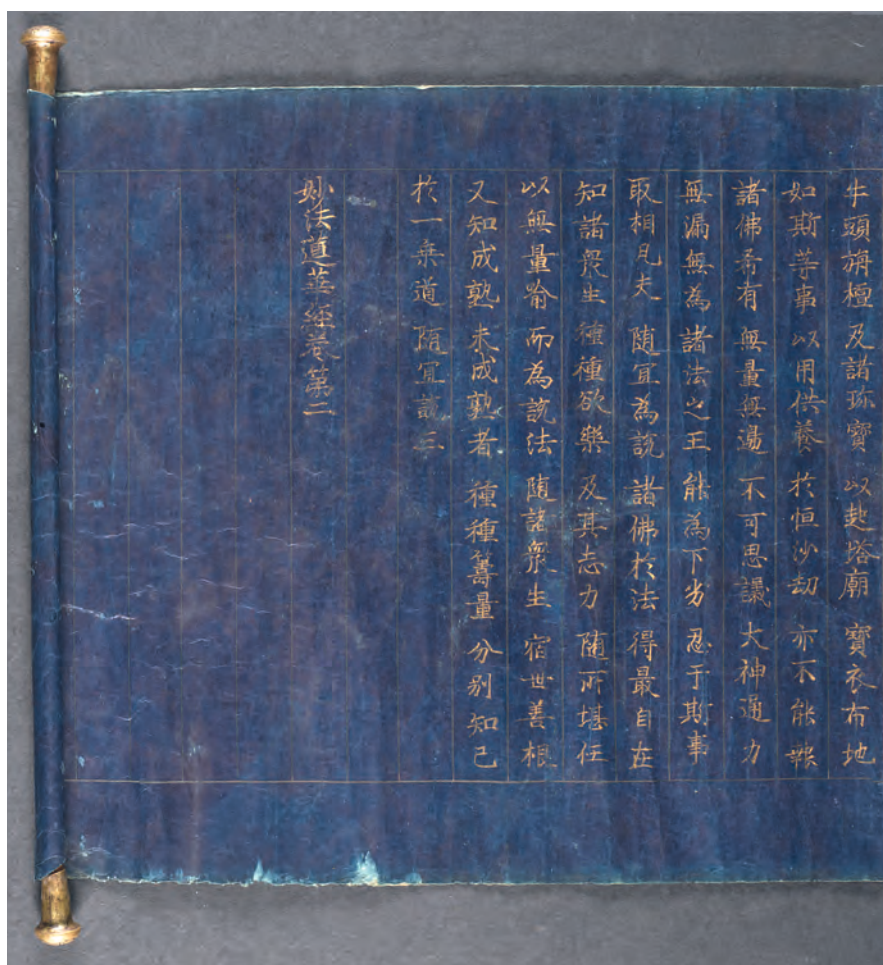 牛頭旃檀 及諸珎寶 以起塔廟 寶衣布地
如斯等事 以用供養 於恒沙劫 亦不能報
諸佛希有 無量無邊 不可思議 大神通力
無漏無為 諸法之王 能為下劣 忍于斯事
取相凡夫 随宜為說 諸佛於法 得最自在
知諸衆生 種種欲樂 及其志力 随所堪任
以無量喻 而為說法 随諸衆生 宿世善根
又知成熟 未成熟者 種種籌量 分別知已
於一乗道 随宜說三
妙法蓮華經卷第二